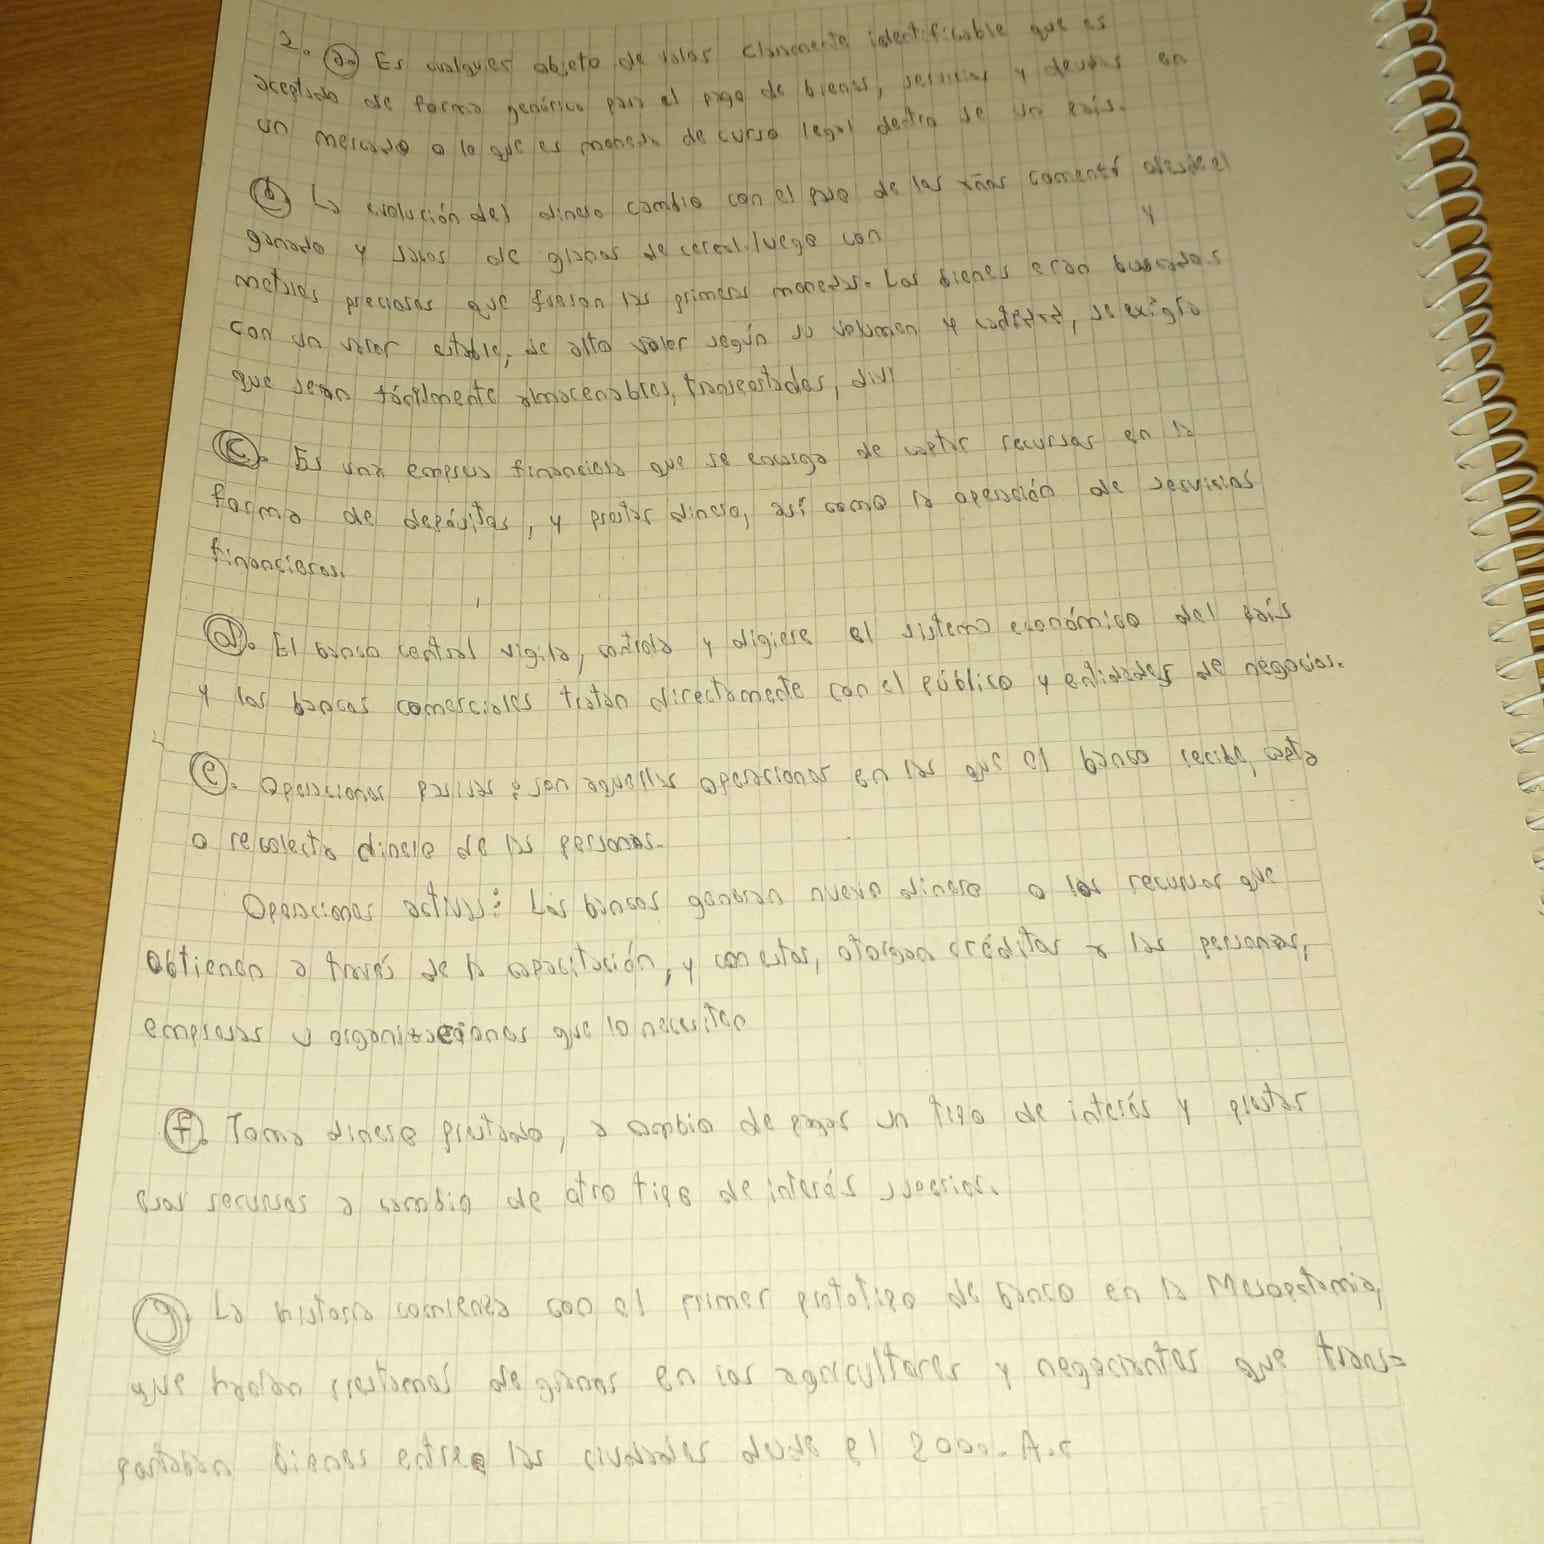 2. a. Es cualquier objeto de valor claramente identificable que es
aceptado de forma genérica para el pago de bienes, servicios y deudas en
un mercado o lo que es moneda de curso legal dentro de un país.
b La evolución del dinero cambio con el paso de los años comentó desde el
ganado y sacos de granos de cereal. luego con y
metales preciosos que fueron las primeras monedas. Los bienes eran buscados
con un valor estable, de alto valor según su volumen y cantidad, se exigía
que sean fácilmente almacenables, transportados, divi
c. Es una empresa financiera que se encarga de captar recursos en la
forma de depósitos, y prestar dinero, así como la operación de servicios
financieros.
d. El banco central vigila, controla y digiere el sistema económico del país
y los bancos comerciales tratan directamente con el público y entidades de negocios.
e. Operaciones pasivas: son aquellas operaciones en las que el banco recibe, capta
o recolecta dinero de las personas.
Operaciones activas: Los bancos generan nuevo dinero o los recursos que
obtienen a través de la capacitación, y con estos, otorgan créditos a las personas,
empresas u organizaciones que lo necesiten
f. Toma dinero prestado, a cambio de pagar un tipo de interés y prestar
esos recursos a cambio de otro tipo de interés superior.
g. La historia comienza con el primer prototipo de banco en la Mesopotamia,
que hacían prestamos de granos en los agricultores y negociantes que trans=
portaban bienes entre las ciudades desde el 2000. A.c